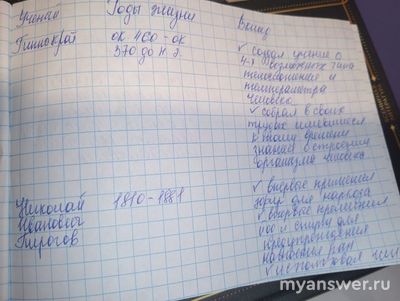 Ученый Годы жизни Вклад
Гиппократ ок 460 - ок
370 до н. э.
✓ создал учение о
4-х возможных типа
телосложения и
темперамента
человека
✓ собрал в своих
трудах имевшиеся
к тому времени
знания о строении
организма человека
Николай 1810-1881
Иванович
Пирогов
✓ впервые применил
эфир для наркоза
✓ впервые применил
йод и спирт для
предупреждения
нагноения ран
✓ использовал
myanswer.ru